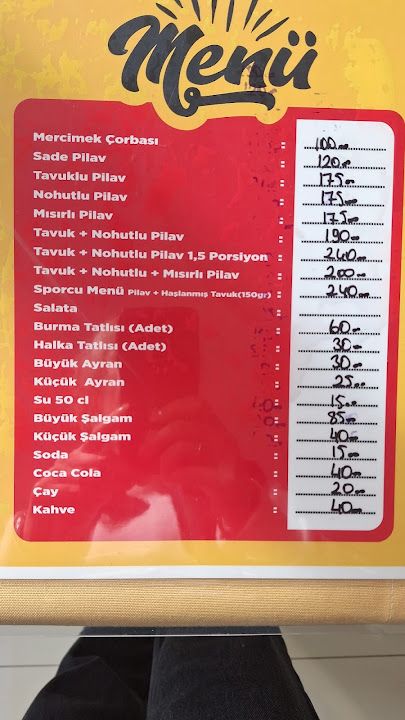 Menü
Mercimek Çorbası : 100.00
Sade Pilav : 120.00
Tavuklu Pilav : 175.00
Nohutlu Pilav : 175.00
Mısırlı Pilav : 175.00
Tavuk + Nohutlu Pilav : 190.00
Tavuk + Nohutlu Pilav 1,5 Porsiyon : 240.00
Tavuk + Nohutlu + Mısırlı Pilav : 200.00
Sporcu Menü Pilav + Haşlanmış Tavuk(150gr) : 240.00
Salata :
Burma Tatlısı (Adet) : 60.00
Halka Tatlısı (Adet) : 30.00
Büyük Ayran : 30.00
Küçük Ayran : 25.00
Su 50 cl : 15.00
Büyük Şalgam : 85.00
Küçük Şalgam : 40.00
Soda : 15.00
Coca Cola : 40.00
Çay : 20.00
Kahve : 40.00